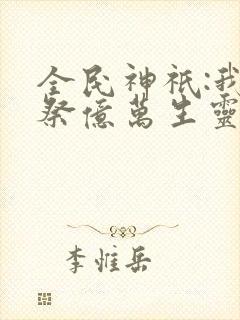 全民神祇:我
祭億萬生靈
李惟岳